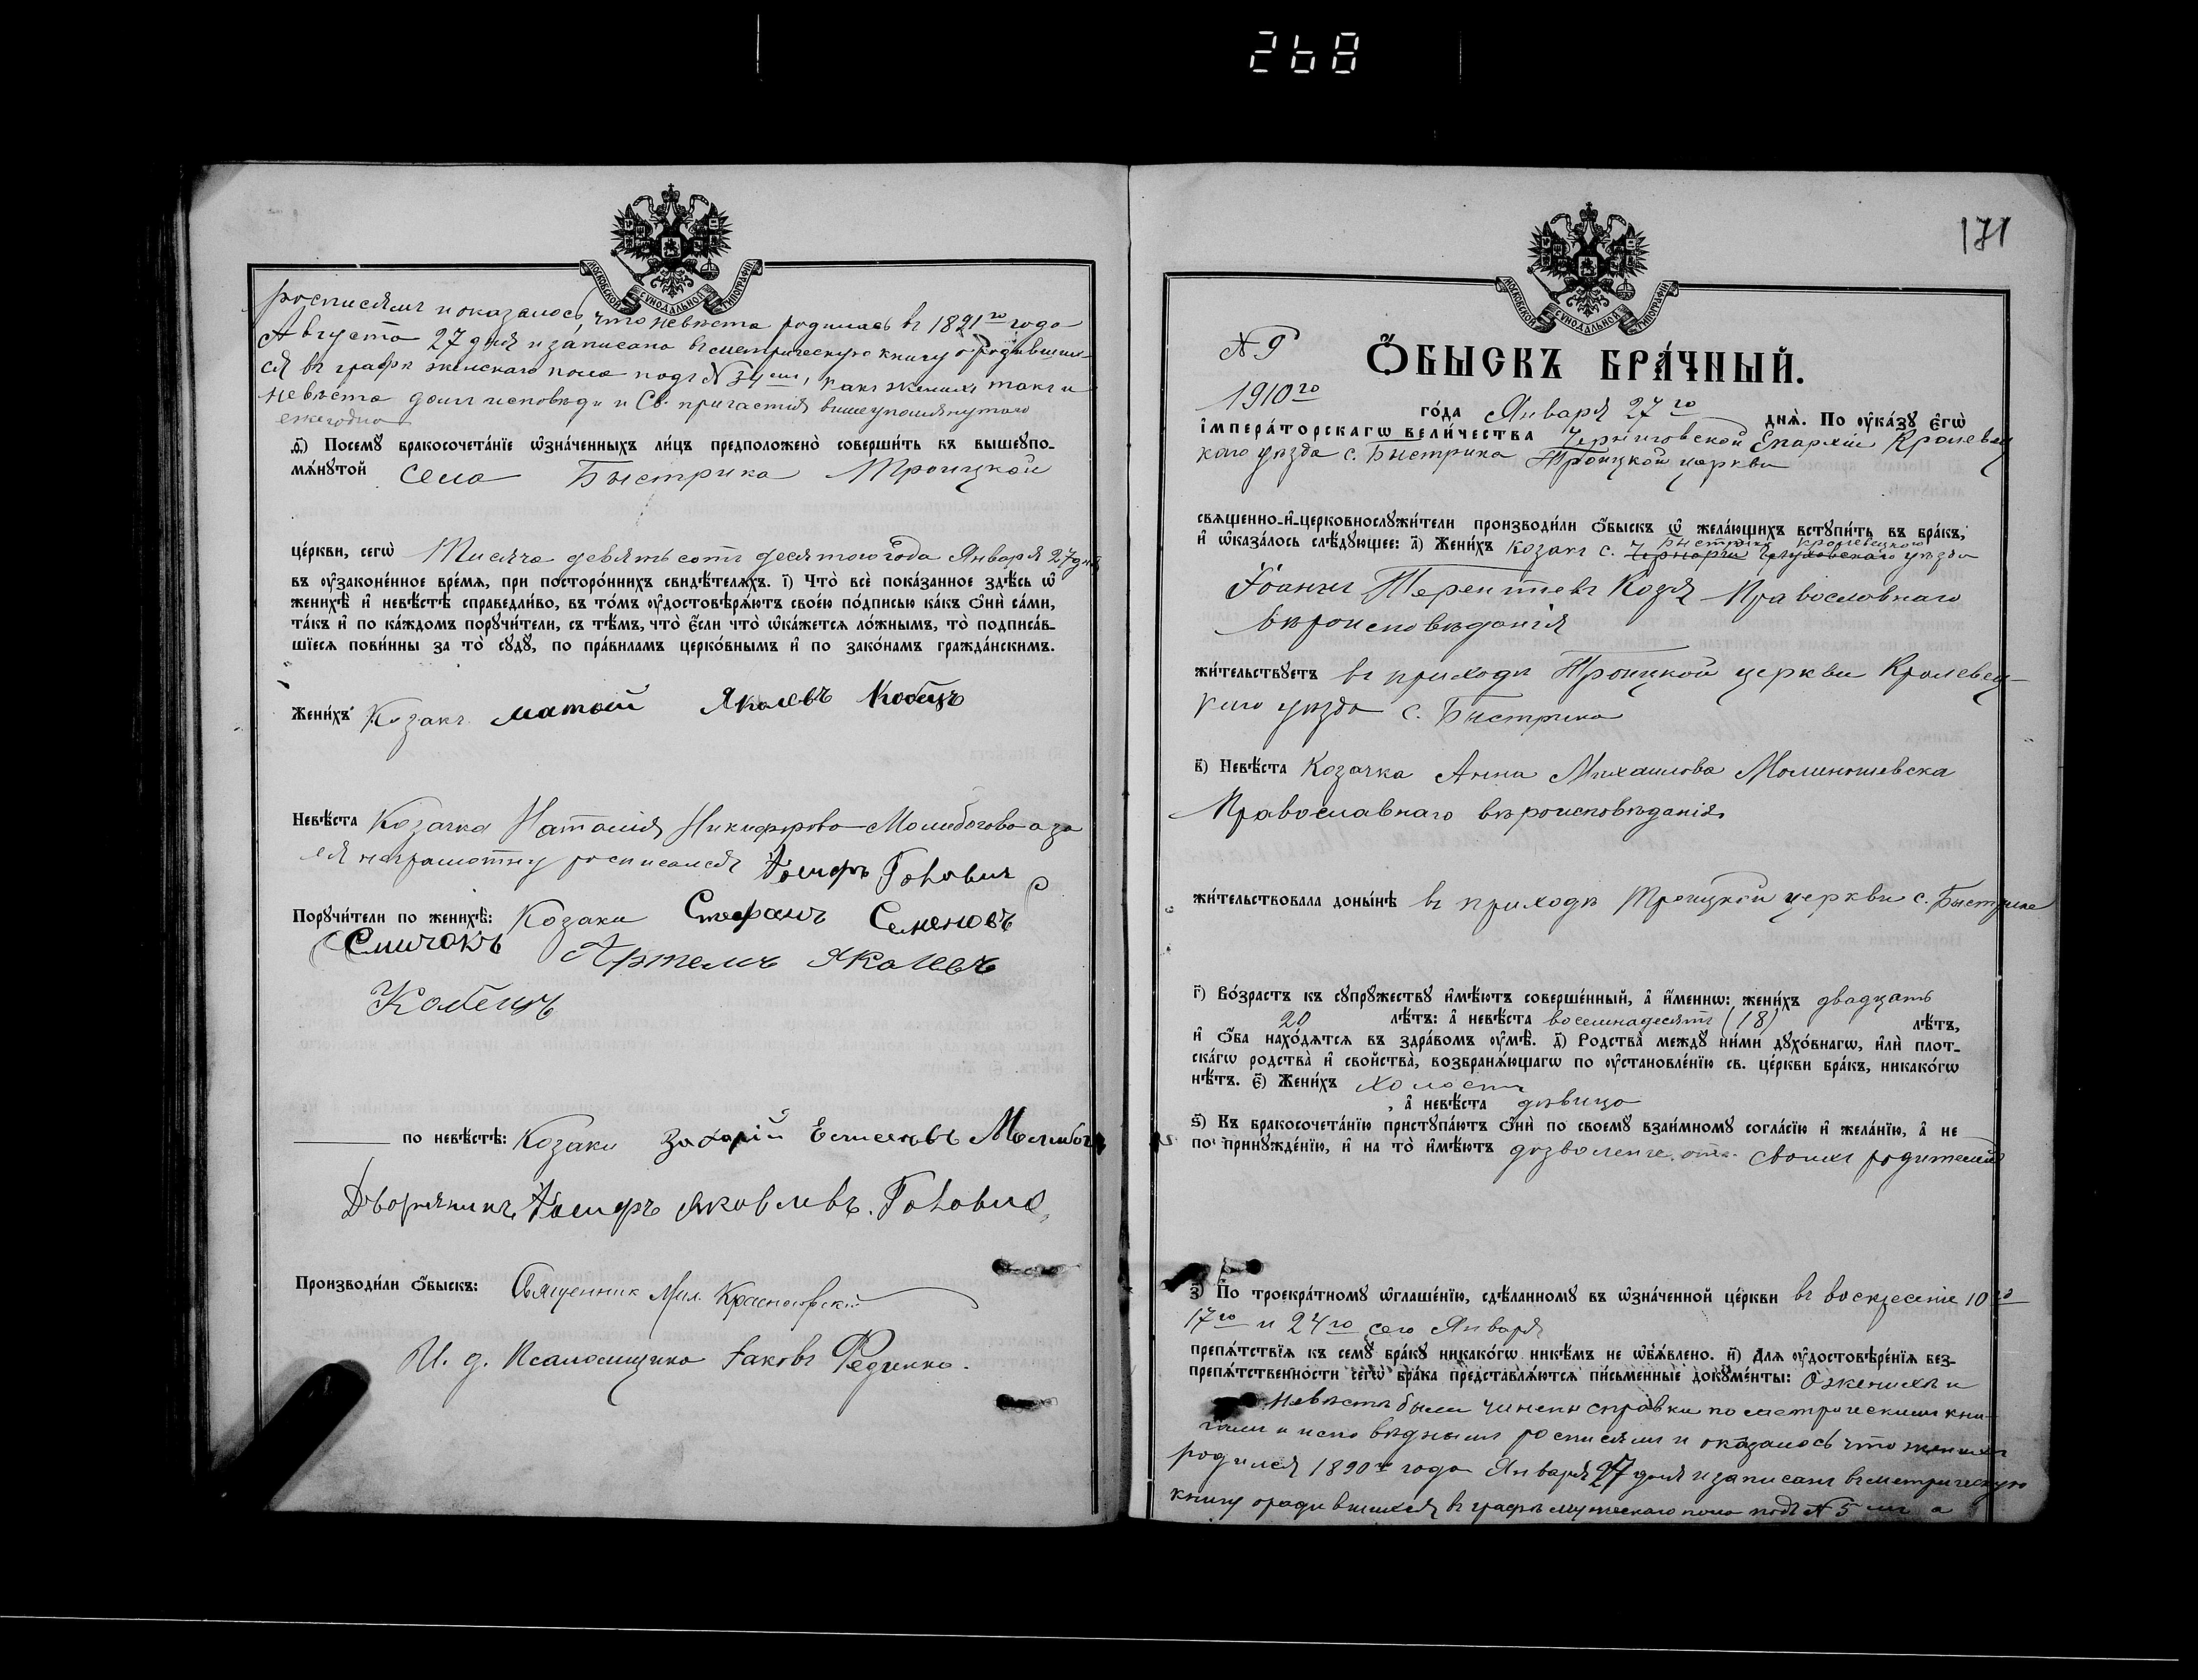 268
МОСКОВСКОЙ СУНОДАЛЬНОЙ ТИПОГРАФІИ
росписямъ и оказалось, что невѣста родилась въ 1891го года
Августа 27 дня и записана въ метрическую книгу о родивших-
ся въ графѣ женскаго пола подъ № 34ем, какъ женихъ такъ и
невѣста были исповѣди и Св. причастія вышеупомянутаго
ежегодно
Посемꙋ бракосочета́нїе ѡ҆зна́ченныхъ ли́цъ предположено̀ соверши́ть въ вышеꙋпо-
мѧ́нꙋтой села Быстрика Троицкой
це́ркви, сегѡ̀ Тисяча девятьсотъ десятого года Января 27 дня
въ ᲂу҆законе́нное вре́мѧ, при посторо́ннихъ свидѣ́телѧхъ. і҃) Что̀ всѐ пока́занное здѣ́сь ѡ҆
женихѣ̀ и҆ невѣ́стѣ справедли́во, въ то́мъ ᲂу҆достовѣрѧ́ютъ свое́ю по́дписью ка́къ ѻ҆нѝ са́ми,
та́къ и҆ по ка́ждомъ порꙋчи́тели, съ тѣ́мъ, что̀ є҆́сли что̀ ѡ҆ка́жетсѧ ло́жнымъ, то̀ подписа́в-
шїесѧ пови́нны за то̀ сꙋдꙋ̀, по пра́виламъ церко́внымъ и҆ по зако́намъ гражда́нскимъ.
Жени́хъ Козакъ Матвій Яколевъ Кобецъ
Невѣ́ста Козачка Наталія Никифорова Молибогова а за
ея неграмотну росписался Іосифъ Голович
Порꙋчи́тели по женихѣ̀: Козаки Стефанъ Семеновъ
Смичокъ Артемъ Яколевъ
Кобецъ
по невѣ́стѣ: Козаки Захарій Елисеевъ Молибога
Дворянинъ, Іосифъ Яковлевъ. Головичъ
Производи́ли ѻ҆́быскъ: Священник Мих. Красногорский
И. д. Псаломщика Іаковъ Федченко.
171
МОСКОВСКОЙ СУНОДАЛЬНОЙ ТИПОГРАФІИ
№ 9
Ѻ҆́БЫСКЪ БРА́ЧНЫЙ.
1910го го́да Января 27го днѧ̀. По ᲂу҆ка́зꙋ є҆гѡ̀
і҆мпера́торскагѡ вели́чества Черниговской Епархіи Кролевец
каго уѣзда с. Быстрика Троицкой церкви
свѧще́нно-и҆-церковнослꙋжи́тели производи́ли ѻ҆́быскъ ѡ҆ жела́ющихъ встꙋпи́ть въ бра́къ,
и҆ ѡ҆каза́лось слѣ́дꙋющее: а҃) Жени́хъ козакъ с. Быстрика Кролевецкого уѣзда
Іоаннъ Терентіевъ Козя Православнаго
вѣроисповѣданія
жи́тельствꙋетъ въ приходѣ Троицкой церкви Кролевец-
каго уѣзда с. Быстрика
в҃) Невѣ́ста Козачка Анна Михаилова
Православнаго вѣроисповѣданія
жи́тельствовала доны́нѣ въ приходѣ Троицкой церкви с. Быстрика
г҃) Во́зрастъ къ сꙋпрꙋ́жествꙋ и҆мѣ́ютъ соверше́нный, а҆ и҆́меннѡ: жени́хъ двадцать
20 лѣ́тъ: а҆ невѣ́ста восемнадесятъ (18) лѣ́тъ,
и҆ ѻ҆́ба нахо́дѧтсѧ въ здра́вомъ ᲂу҆мѣ̀. д҃) Родства̀ междꙋ̀ ни́ми дꙋхо́внагѡ, и҆лѝ плот-
ска́гѡ родства̀ и҆ сво́йства̀, возбранѧ́ющагѡ по ᲂу҆становле́нїю св. це́ркви бра́къ, никако́гѡ
нѣ́тъ. є҃) Жени́хъ холостъ
, а҆ невѣ́ста дѣвица
ѕ҃) Къ бракосочета́нїю пристꙋпа́ютъ ѻ҆нѝ по своемꙋ̀ взаи́мномꙋ согла́сїю и҆ жела́нїю, а҆ не
по принꙋжде́нїю, и҆ на то̀ и҆мѣ́ютъ дозволеніе отъ своихъ родителей
з҃) По троекра́тномꙋ ѡ҆глаше́нїю, сдѣ́ланномꙋ въ ѡ҆зна́ченной це́ркви въ воскресеніе 10го
17го и 24го сего Января
препѧ́тствїѧ къ семꙋ̀ бра́кꙋ никако́гѡ никѣ́мъ не ѡ҆б̾ѧ́влено. и҃) Длѧ ᲂу҆достовѣре́нїѧ без-
препѧ́тственности сегѡ̀ бра́ка представлѧ́ютсѧ пи́сьменные докꙋме́нты: О женихѣ и
невѣстѣ были чинены справки по метрическимъ кни-
гамъ и исповѣднымъ росписямъ и оказалось что женихъ
родился 1890го года Января 27 дня и записанъ въ метрическую
книгу о родившихся въ графѣ мужескаго пола подъ № 5мъ а